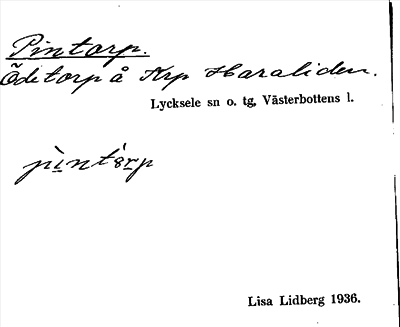 Pintorp.
Ödetorp å Krp Haraliden.
Lycksele sn o. tg, Västerbottens l.
Lisa Lidberg 1936.